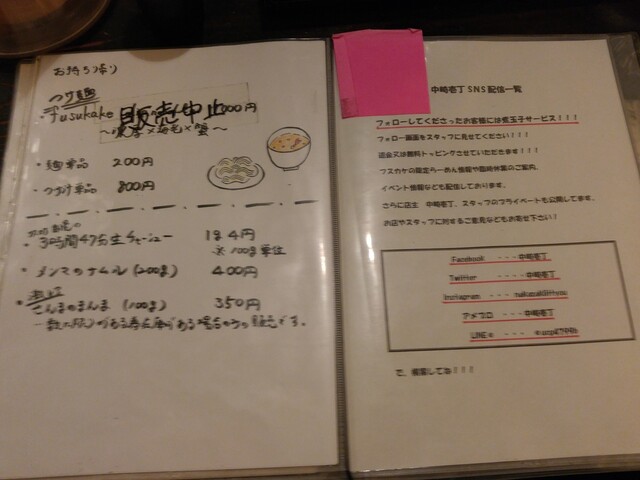 お持ち帰り
つけ麺
fusukake 販売中止 000円
～濃厚×海老×蟹～
・麺単品 200円
・つけ汁単品 800円
1g 4円
※100g単位
・メンマのナムル (200g) 400円
さんまのまんま (100g) 350円
中崎壱丁 SNS配信一覧
フォローしてくださったお客様には煮玉子サービス！！！
フォロー画面をスタッフに見せてください！！！
フスカケの限定らーめん情報や臨時休業のご案内、
イベント情報なども配信しております。
さらに店主 中崎壱丁、スタッフのプライベートも公開してます。
お店やスタッフに対するご意見などもお寄せ下さい！
Facebook ---中崎壱丁
Twitter ---中崎壱丁
Instagram ---
アメブロ ---中崎壱丁
LINE@ ---
で、検索してね！！！